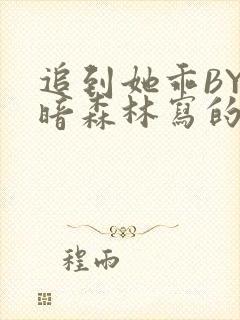 追到她乖BY
暗森林寫的
程雨